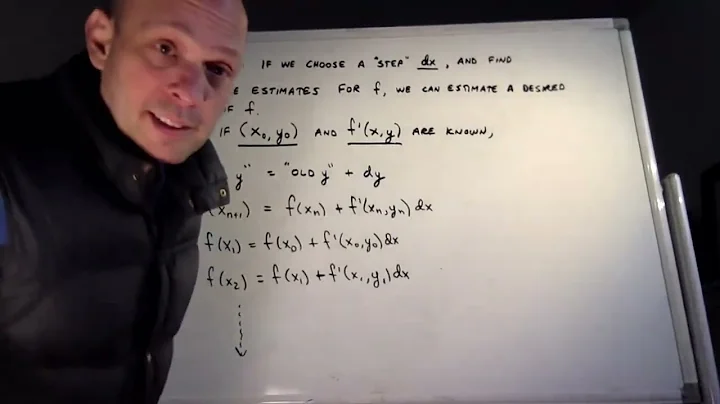 IF WE CHOOSE A "STEP" dx, AND FIND
ESTIMATES FOR f, WE CAN ESTIMATE A DESIRED
f.
IF (x₀, y₀) AND f'(x,y) ARE KNOWN,
y" = "OLD y" + dy
(xₙ₊₁) = f(xₙ) + f'(xₙ,yₙ)dx
f(x₁) = f(x₀) + f'(x₀,y₀)dx
f(x₂) = f(x₁) + f'(x₁,y₁)dx